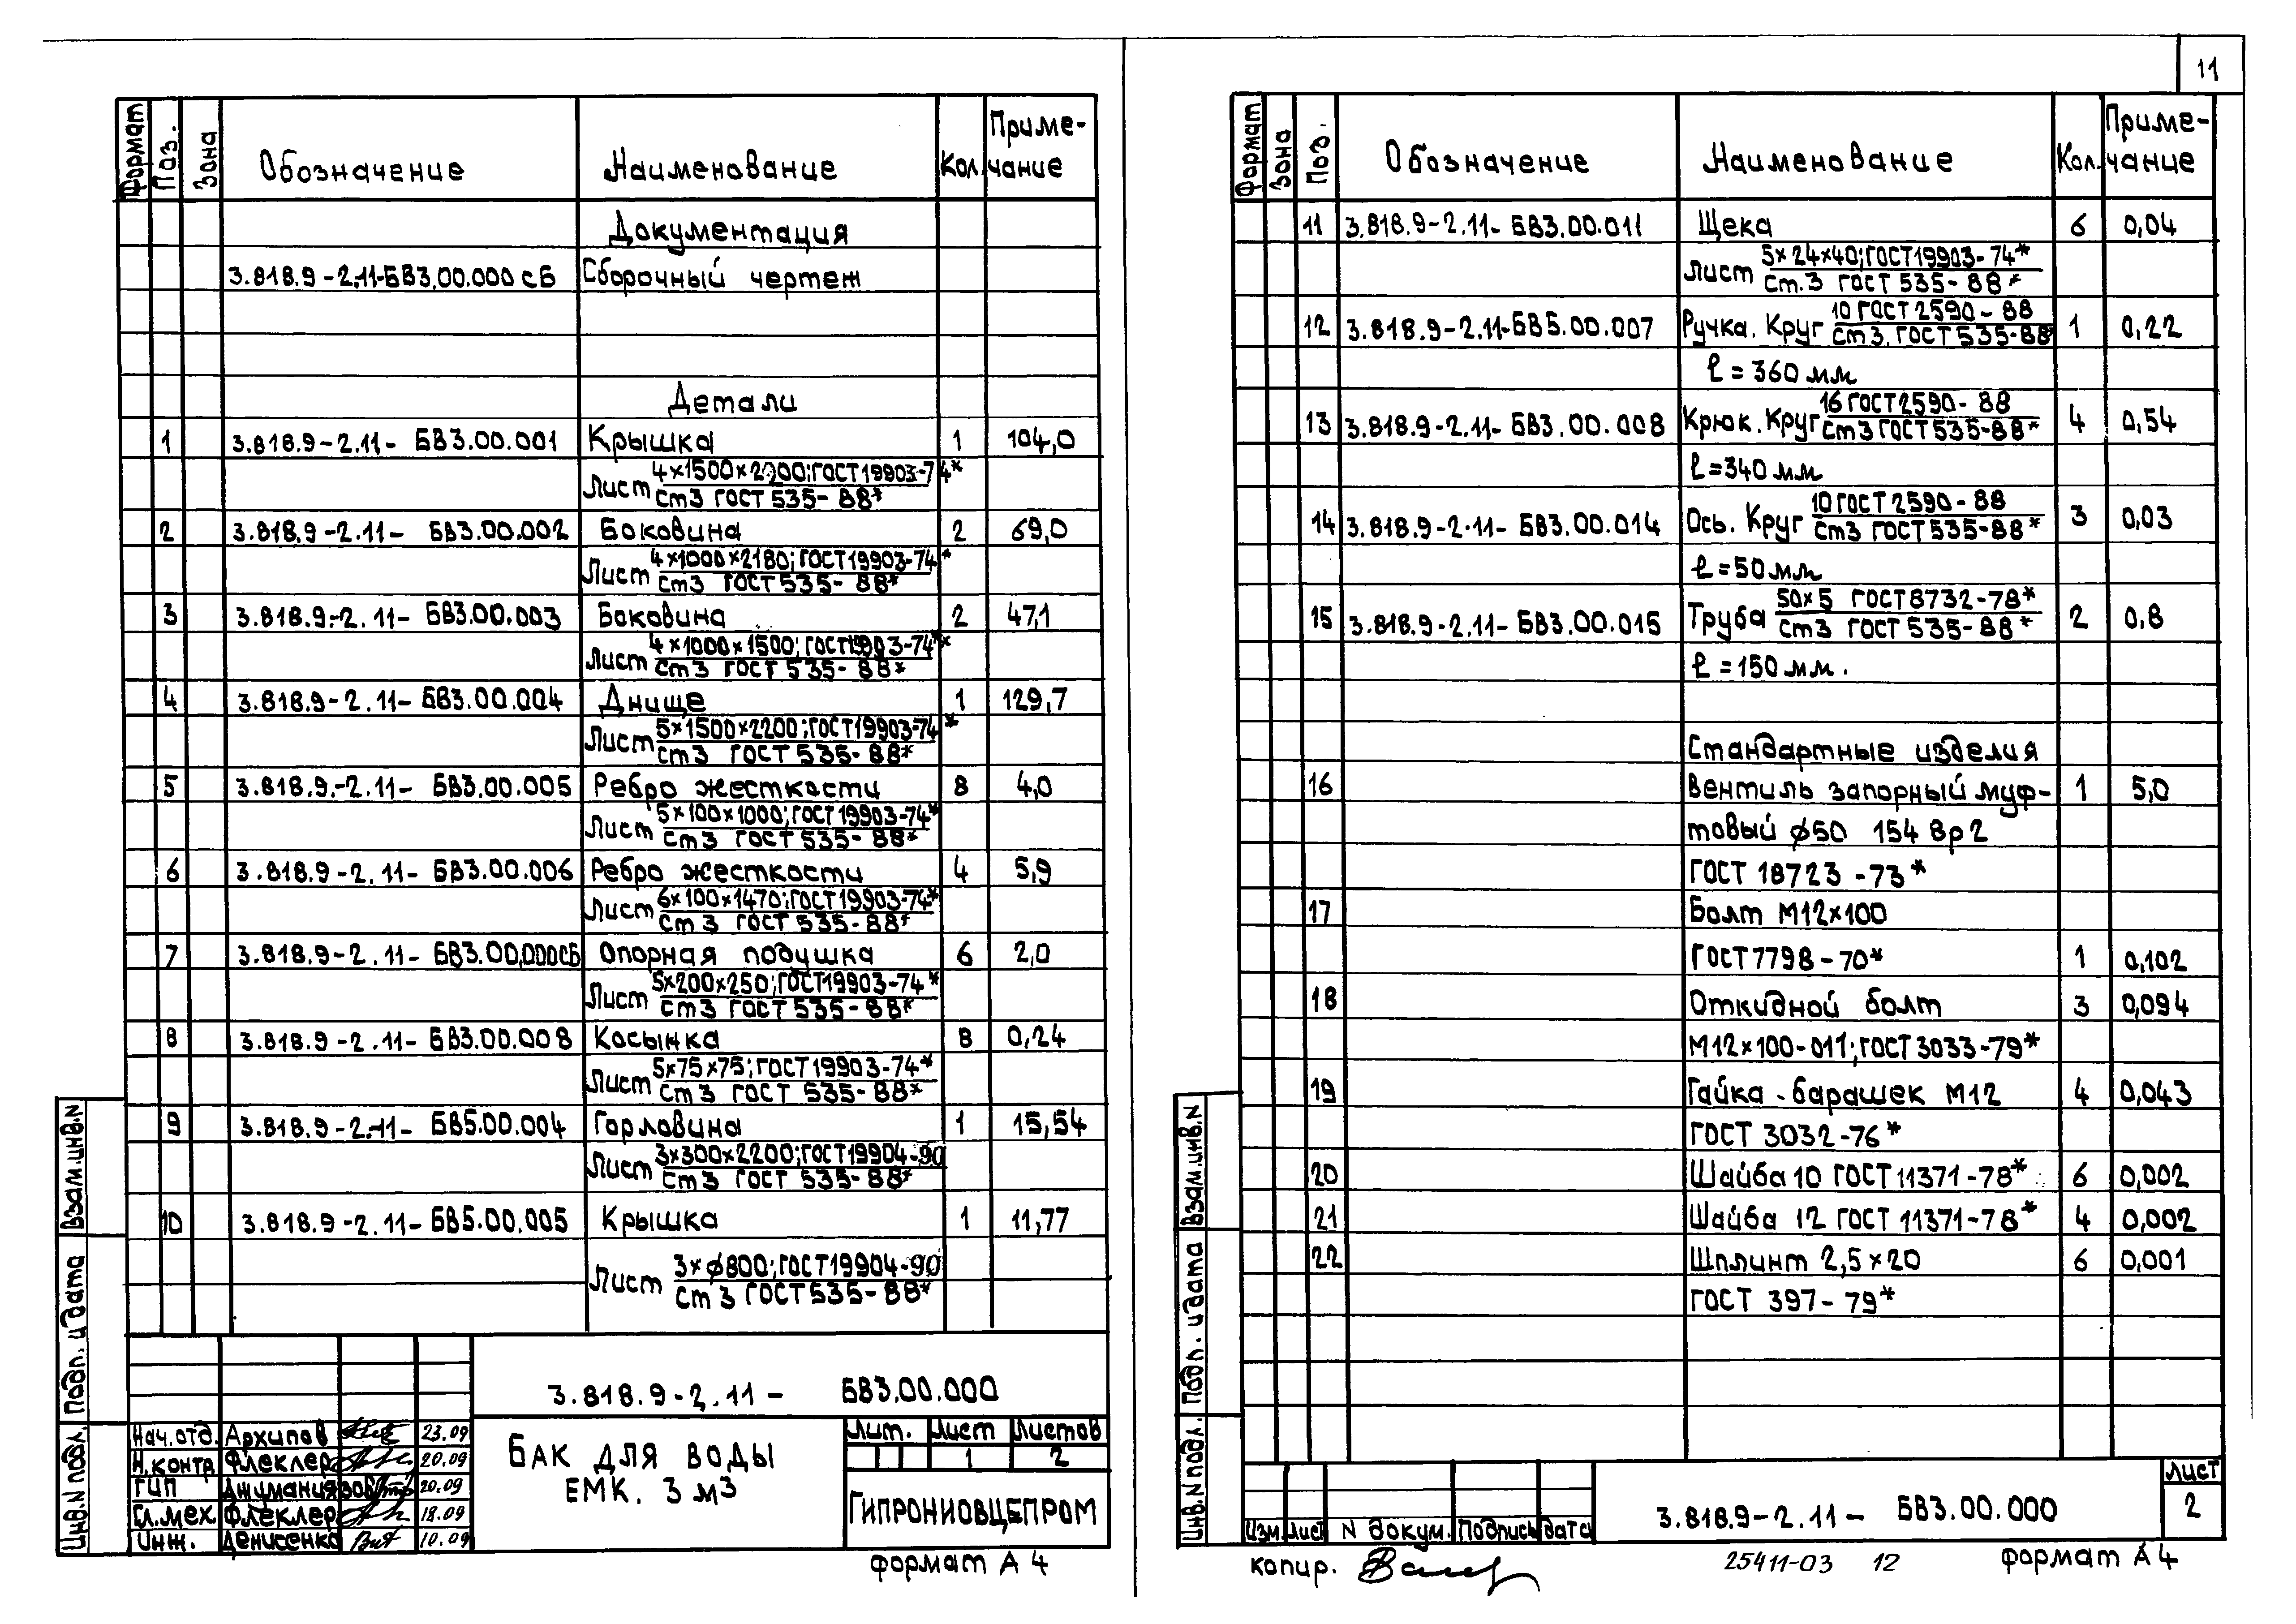 11
Формат Поз. Зона Обозначение Наименование Кол. Приме-
чание
Документация
3.818.9-2.11-БВ3.00.000 СБ Сборочный чертеж
Детали
1 3.818.9-2.11- БВ3.00.001 Крышка 1 104,0
Лист 4×1500×2200;ГОСТ19903-74*
Ст3 ГОСТ 535-88*
2 3.818.9-2.11- БВ3.00.002 Боковина 2 69,0
Лист 4×1000×2180;ГОСТ19903-74*
Ст3 ГОСТ 535-88*
3 3.818.9-2.11- БВ3.00.003 Боковина 2 47,1
Лист 4×1000×1500;ГОСТ19903-74*
Ст3 ГОСТ 535-88*
4 3.818.9-2.11- БВ3.00.004 Днище 1 129,7
Лист 5×1500×2200;ГОСТ19903-74*
Ст3 ГОСТ 535-88*
5 3.818.9-2.11- БВ3.00.005 Ребро жесткости 8 4,0
Лист 5×100×1000;ГОСТ19903-74*
Ст3 ГОСТ 535-88*
6 3.818.9-2.11- БВ3.00.006 Ребро жесткости 4 5,9
Лист 6×100×1470;ГОСТ19903-74*
Ст3 ГОСТ 535-88*
7 3.818.9-2.11- БВ3.00.000СБ Опорная подушка 6 2,0
Лист 5×200×250;ГОСТ19903-74*
Ст3 ГОСТ 535-88*
8 3.818.9-2.11- БВ3.00.008 Косынка 8 0,24
Лист 5×75×75;ГОСТ19903-74*
Ст3 ГОСТ 535-88*
9 3.818.9-2.11- БВ5.00.004 Горловина 1 15,54
Лист 3×300×2200;ГОСТ19904-90
Ст3 ГОСТ 535-88*
10 3.818.9-2.11- БВ5.00.005 Крышка 1 11,77
Лист 3×φ800;ГОСТ19904-90
Ст3 ГОСТ535-88*
3.818.9-2.11- БВ3.00.000
Нач.отд. Архипов 23.09
Н.контр Флеклер 20.09
ГИП Джуманиязов 20.09
Гл.мех. Флеклер 18.09
Инж. Денисенко 10.09
БАК ДЛЯ ВОДЫ
ЕМК. 3 м3
Лит. Лист Листов
1 2
ГИПРОНИОВЦЕПРОМ
Формат А4
Инв.N подл. Подп. и дата Взам.инв.N
Формат Зона Поз. Обозначение Наименование Кол. Приме-
чание
11 3.818.9-2.11- БВ3.00.011 Щека 6 0,04
Лист 5×24×40;ГОСТ19903-74*
Ст.3 ГОСТ 535-88*
12 3.818.9-2.11-БВ5.00.007 Ручка. Круг 10 ГОСТ 2590-88 1 0,22
Ст3. ГОСТ 535-88*
ℓ = 360 мм
13 3.818.9-2.11- БВ3.00.008 Крюк. Круг 16 ГОСТ2590-88 4 0,54
Ст3 ГОСТ 535-88*
ℓ=340 мм
14 3.818.9-2.11- БВ3.00.014 Ось. Круг 10 ГОСТ 2590-88 3 0,03
Ст3 ГОСТ535-88*
ℓ = 50 мм
15 3.818.9-2.11- БВ3.00.015 Труба 50×5 ГОСТ8732-78* 2 0,8
Ст3 ГОСТ 535-88*
ℓ = 150 мм.
Стандартные изделия
16 Вентиль запорный муф- 1 5,0
товый φ50 15Ч 8р2
ГОСТ 18723-73*
17 Болт М12×100
ГОСТ7798-70* 1 0,102
18 Откидной болт 3 0,094
М12×100-011;ГОСТ3033-79*
19 Гайка-барашек М12 4 0,043
ГОСТ 3032-76*
20 Шайба 10 ГОСТ 11371-78* 6 0,002
21 Шайба 12 ГОСТ 11371-78* 4 0,002
22 Шплинт 2,5×20 6 0,001
ГОСТ 397-79*
Изм. Лист N докум. Подпись Дата
3.818.9-2.11- БВ3.00.000
Лист
2
Инв.N подл. Подп. и дата Взам.инв.N
копир. 25411-03 12 Формат А4